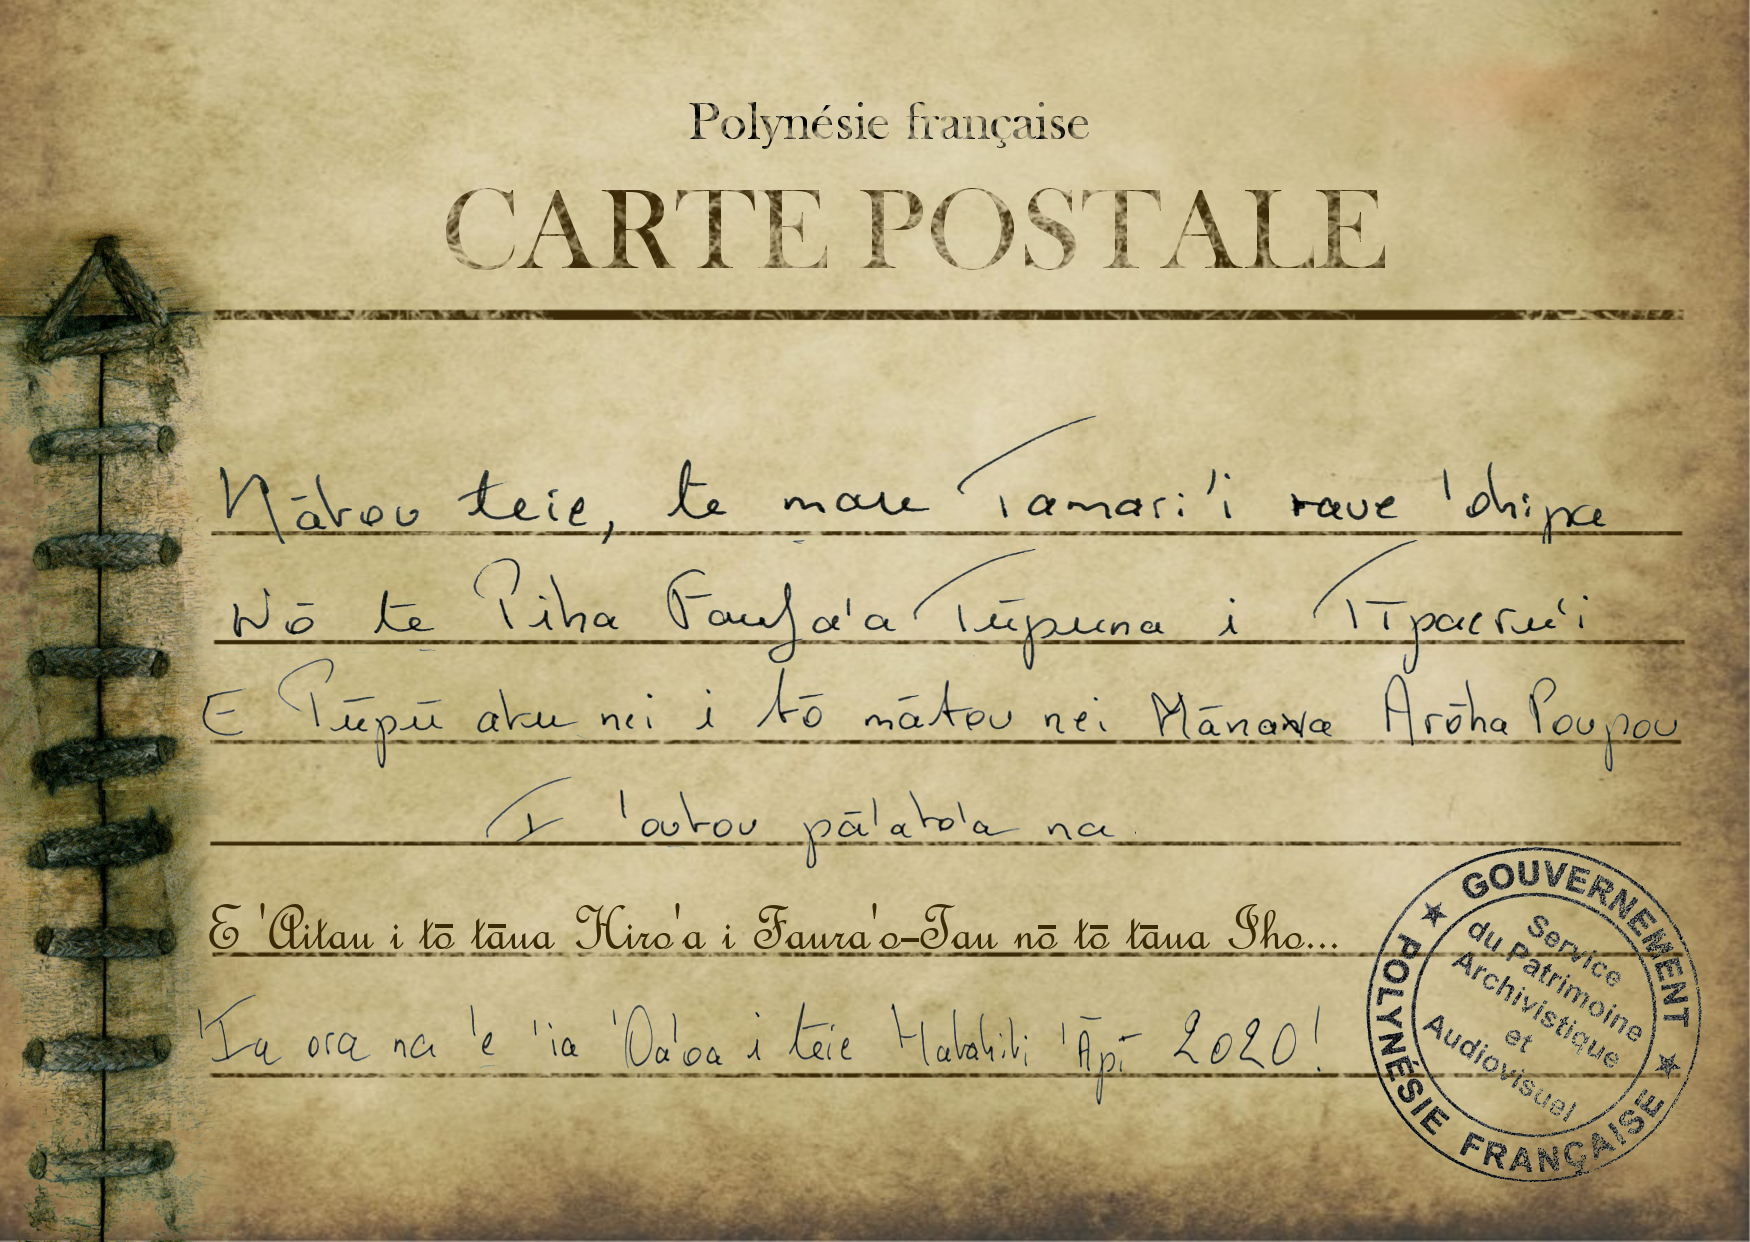 Polynésie française
CARTE POSTALE
Nātou teie, te mau Tamari'i rave 'ohipa
Nō te Piha Faufa'a Tūpuna i Tīpaeru'i
E Pūpū atu nei i tō mātou nei Mānava Arōha Poupou
I 'outou pā'ato'a na
E 'Aitau i tō tāua Hiro'a i Faura'o-Tau nō tō tāua Iho...
'Ia ora na 'e 'ia 'Oa'oa i teie Matahiti 'Āpī 2020!
GOUVERNEMENT
POLYNÉSIE FRANÇAISE
Service
du Patrimoine
Archivistique
et
Audiovisuel